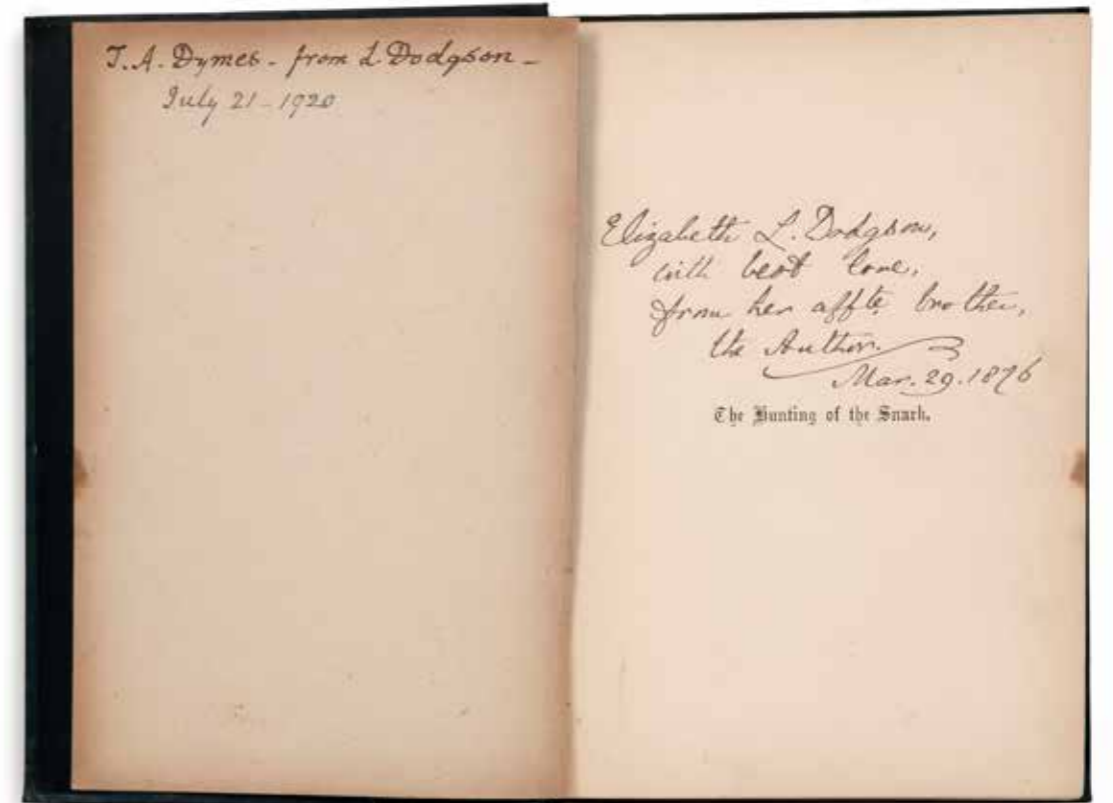 T. A. Dymes - from L. Dodgson -
July 21 - 1920
Elizabeth L. Dodgson,
with best love,
from her affte brother,
the Author.
Mar. 29. 1876
The Hunting of the Snark.